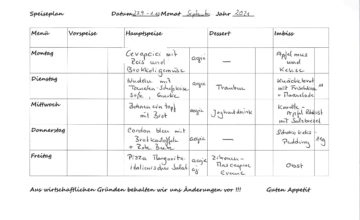 Speiseplan Datum 27.9 - 1.10 Monat September Jahr 2021
Menü Vorspeise Hauptspeise Dessert Imbiss
Montag Cevapcici mit Reis und Brokkoligemüse — Apfelmus und Kekse
Dienstag Nudeln mit Tomaten-Soße, Gurke Trauben Knäckebrot mit Frischkäse + Marmelade
Mittwoch Bohneneintopf mit Brot Joghurtdrink Karotte - Apfel mit Salzbrezel
Donnerstag Cordon bleu mit Bratkartoffeln + Rote Beete — Schokokeks - Pudding
Freitag Pizza Margarita Italienischer Salat Zitronen - Mascarpone Creme Obst
Aus wirtschaftlichen Gründen behalten wir uns Änderungen vor !!! Guten Appetit